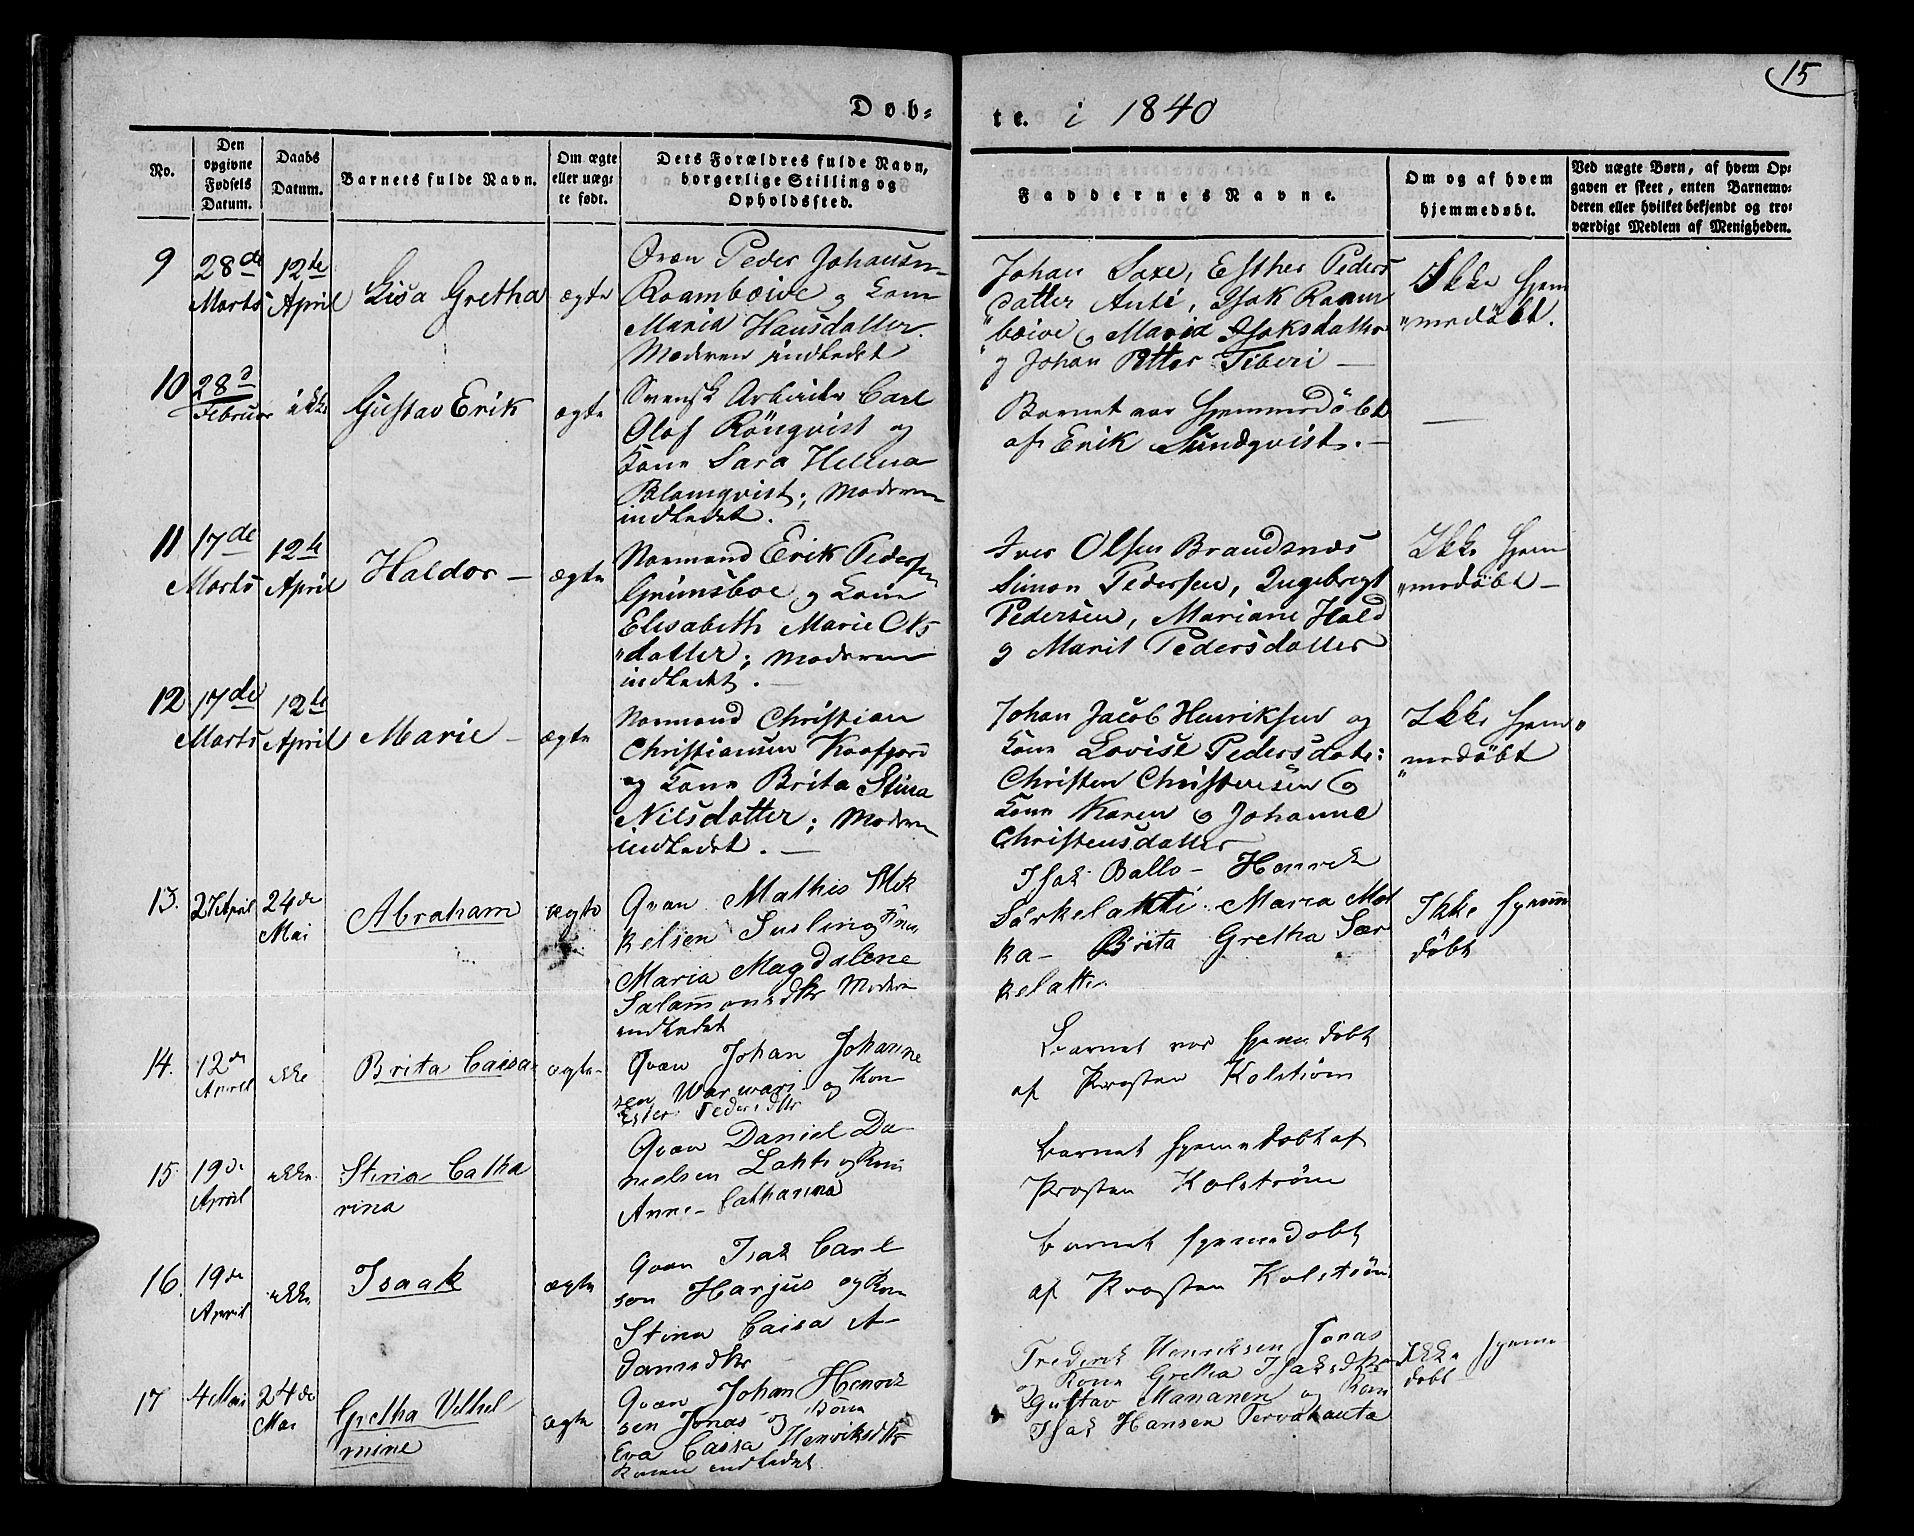 15
Døb- te. i 1840
No.
Den opgivne Fødsels Datum.
Daabs Datum.
Barnets fulde Navn.
Om ægte eller uæg- te født.
Dets Forældres fulde Navn, borgerlige Stilling og Opholdssted.
Faddernes Navne.
Om og af hvem hjemmedøbt.
Ved uægte Børn, af hvem Op-
gaven er skeet, enten Barnemo-
deren eller hvilket bekjendt og tro-
værdigt Medlem af Menigheden.
9
28de Marts
12te April
Lisa Gretha
ægte
Qvæn Peder Johansen
Raambæive og Kone
Maria Hansdatter.
Moderen indledet
Johan Saxe, Esther Peders
"datter Anti, Isak Raam
"bæive og Maria Isaksdatter
og Johan Petter Tiberi —
Ikke hjem
"medöbt.
10
28d Februar
ikke
Gustav Erik
ægte
Svensk Arbeider Carl
Olof Rönqvist og
Kone Sara Helena
Blomqvist; Moderen
indledet. —
Barnet var hjemmedöbt
af Erik Sundqvist. —
—
11
17de Marts
12te April
Haldor —
ægte
Normand Erik Pedersen
Grimsboe og Kone
Elisabeth Marie Ols
"datter; Moderen
indledet. —
Iver Olsen Brandsnes
Simon Pedersen, Ingebrigt
Pedersen, Mariane Hald
og Marit Pedersdatter
Ikke hjem
"medöbt —
12
17de Marts
12te April
Marie —
ægte
Normand Christian
Christiansen Kaafjord
og Kone Brita Stina
Nilsdatter; Moderen
indledet. —
Johan Jacob Henriksen og
Kone Lovise Pedersdate:
Christen Christensen og
Kone Karen og Johanne
Christensdatter
Ikke hjem"
"medöbt
13.
27 April
24de Mai
Abraham
ægte
Qvæn Mathis Mik
kelsen Susling og Kone
Maria Magdalene
Salamonsdtr Moderen
indledet
Isak Ballo - Henrik
Särkelahti. Maria Mat
ka - Brita Gretha Sær
kelatti
Ikke hjem
döbt
14.
12de April
ikke
Brita Caisa
ægte
Qvæn Johan Johanne
sen Warwari og Kon
Ester Pedersdtr
Barnet var hjemedöbt
af Prosten Kolström
15.
19de April
ikke
Stina Catha
rina
Qvæn Daniel Da-
nielsen Lahti og Kone
Anne Catharina
Barnet hjemedöbt af
Prosten Kolström
16.
19de April
ikke
Isaak
ægte
Qvæn Isak Carl
son Harjus og Kone
Stina Caisa A-
damsdtr
Barnet hjemedöbt
af Prosten Kolström
17
4 Mai
24de Mai
Gretha Vilhel
mine
ægte
Qvæn Johan Henrik
sen Jonas og Kone
Eva Caisa Henriksdtr
Konen indledet
Frederik Henriksen Jonas
og Kone Gretha Isaksdtr
Gustav Mananen og Kone
Isak Hansen Tervahauta
Ikke hjeme
döbt